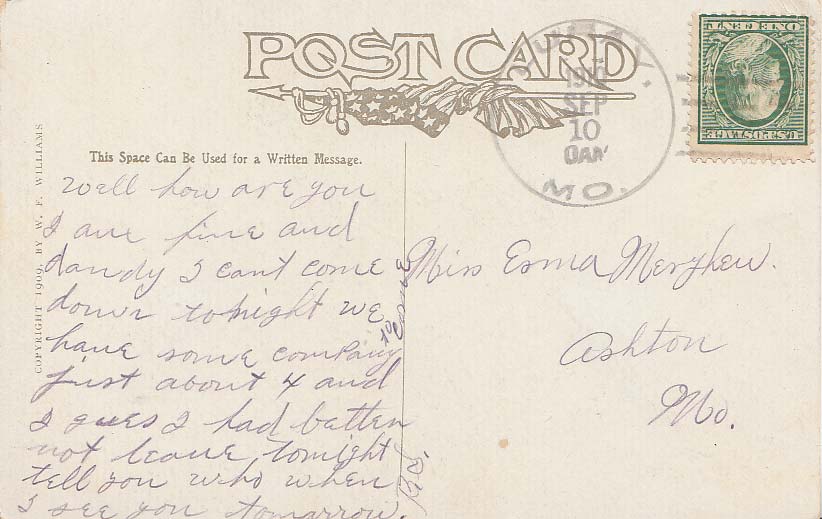 POST CARD
LURAY,
1910
SEP
10
MO.
ONE CENT
U.S. POSTAGE
COPYRIGHT 1909, BY W. F. WILLIAMS
This Space Can Be Used for a Written Message.
Well how are you
I am fine and
dandy I cant come
down tonight we
have some company
to come
just about 4 and
I gues I had better
not leave tonight
tell you who when
I see you tomorrow.
Miss Esma Merykew.
Ashton
Mo.